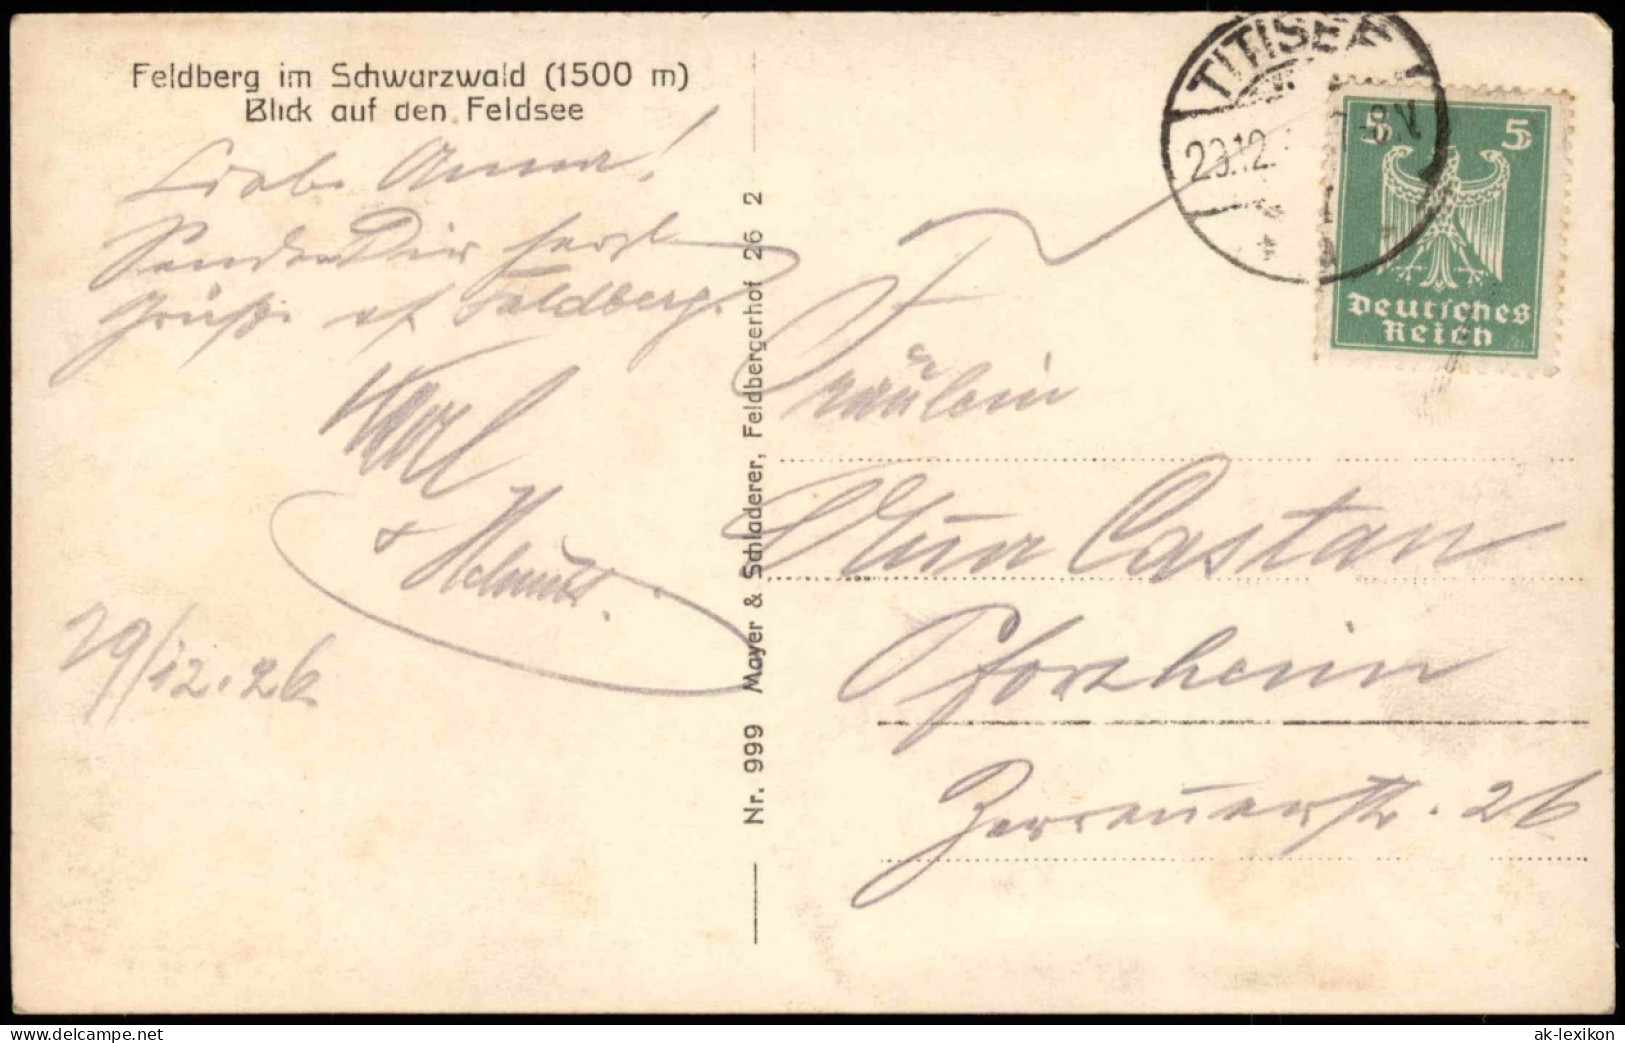 Feldberg im Schwarzwald (1500 m)
Blick auf den Feldsee
Liebe Anna!
Sende Dir herzl.
Grüße v. Feldberg.
Karl
+ Helmut.
29/12.26.
Nr. 999 Mayer & Schladerer, Feldbergerhof 26 2
TITISEE
29.12. -8 V
5 5
Deutsches
Reich
Fräulein
Castan
Pforzheim
Zerrennerstr. 26
delcampe.net
ak-lexikon